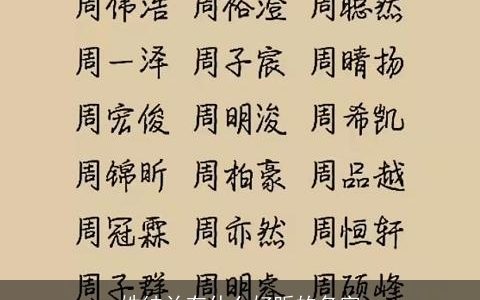 周伟浩 周裕澄 周聪然
周一泽 周子宸 周晴扬
周宏俊 周明浚 周希凯
周锦昕 周柏豪 周品越
周冠霖 周亦然 周恒轩
周子群 周明睿 周硕峰